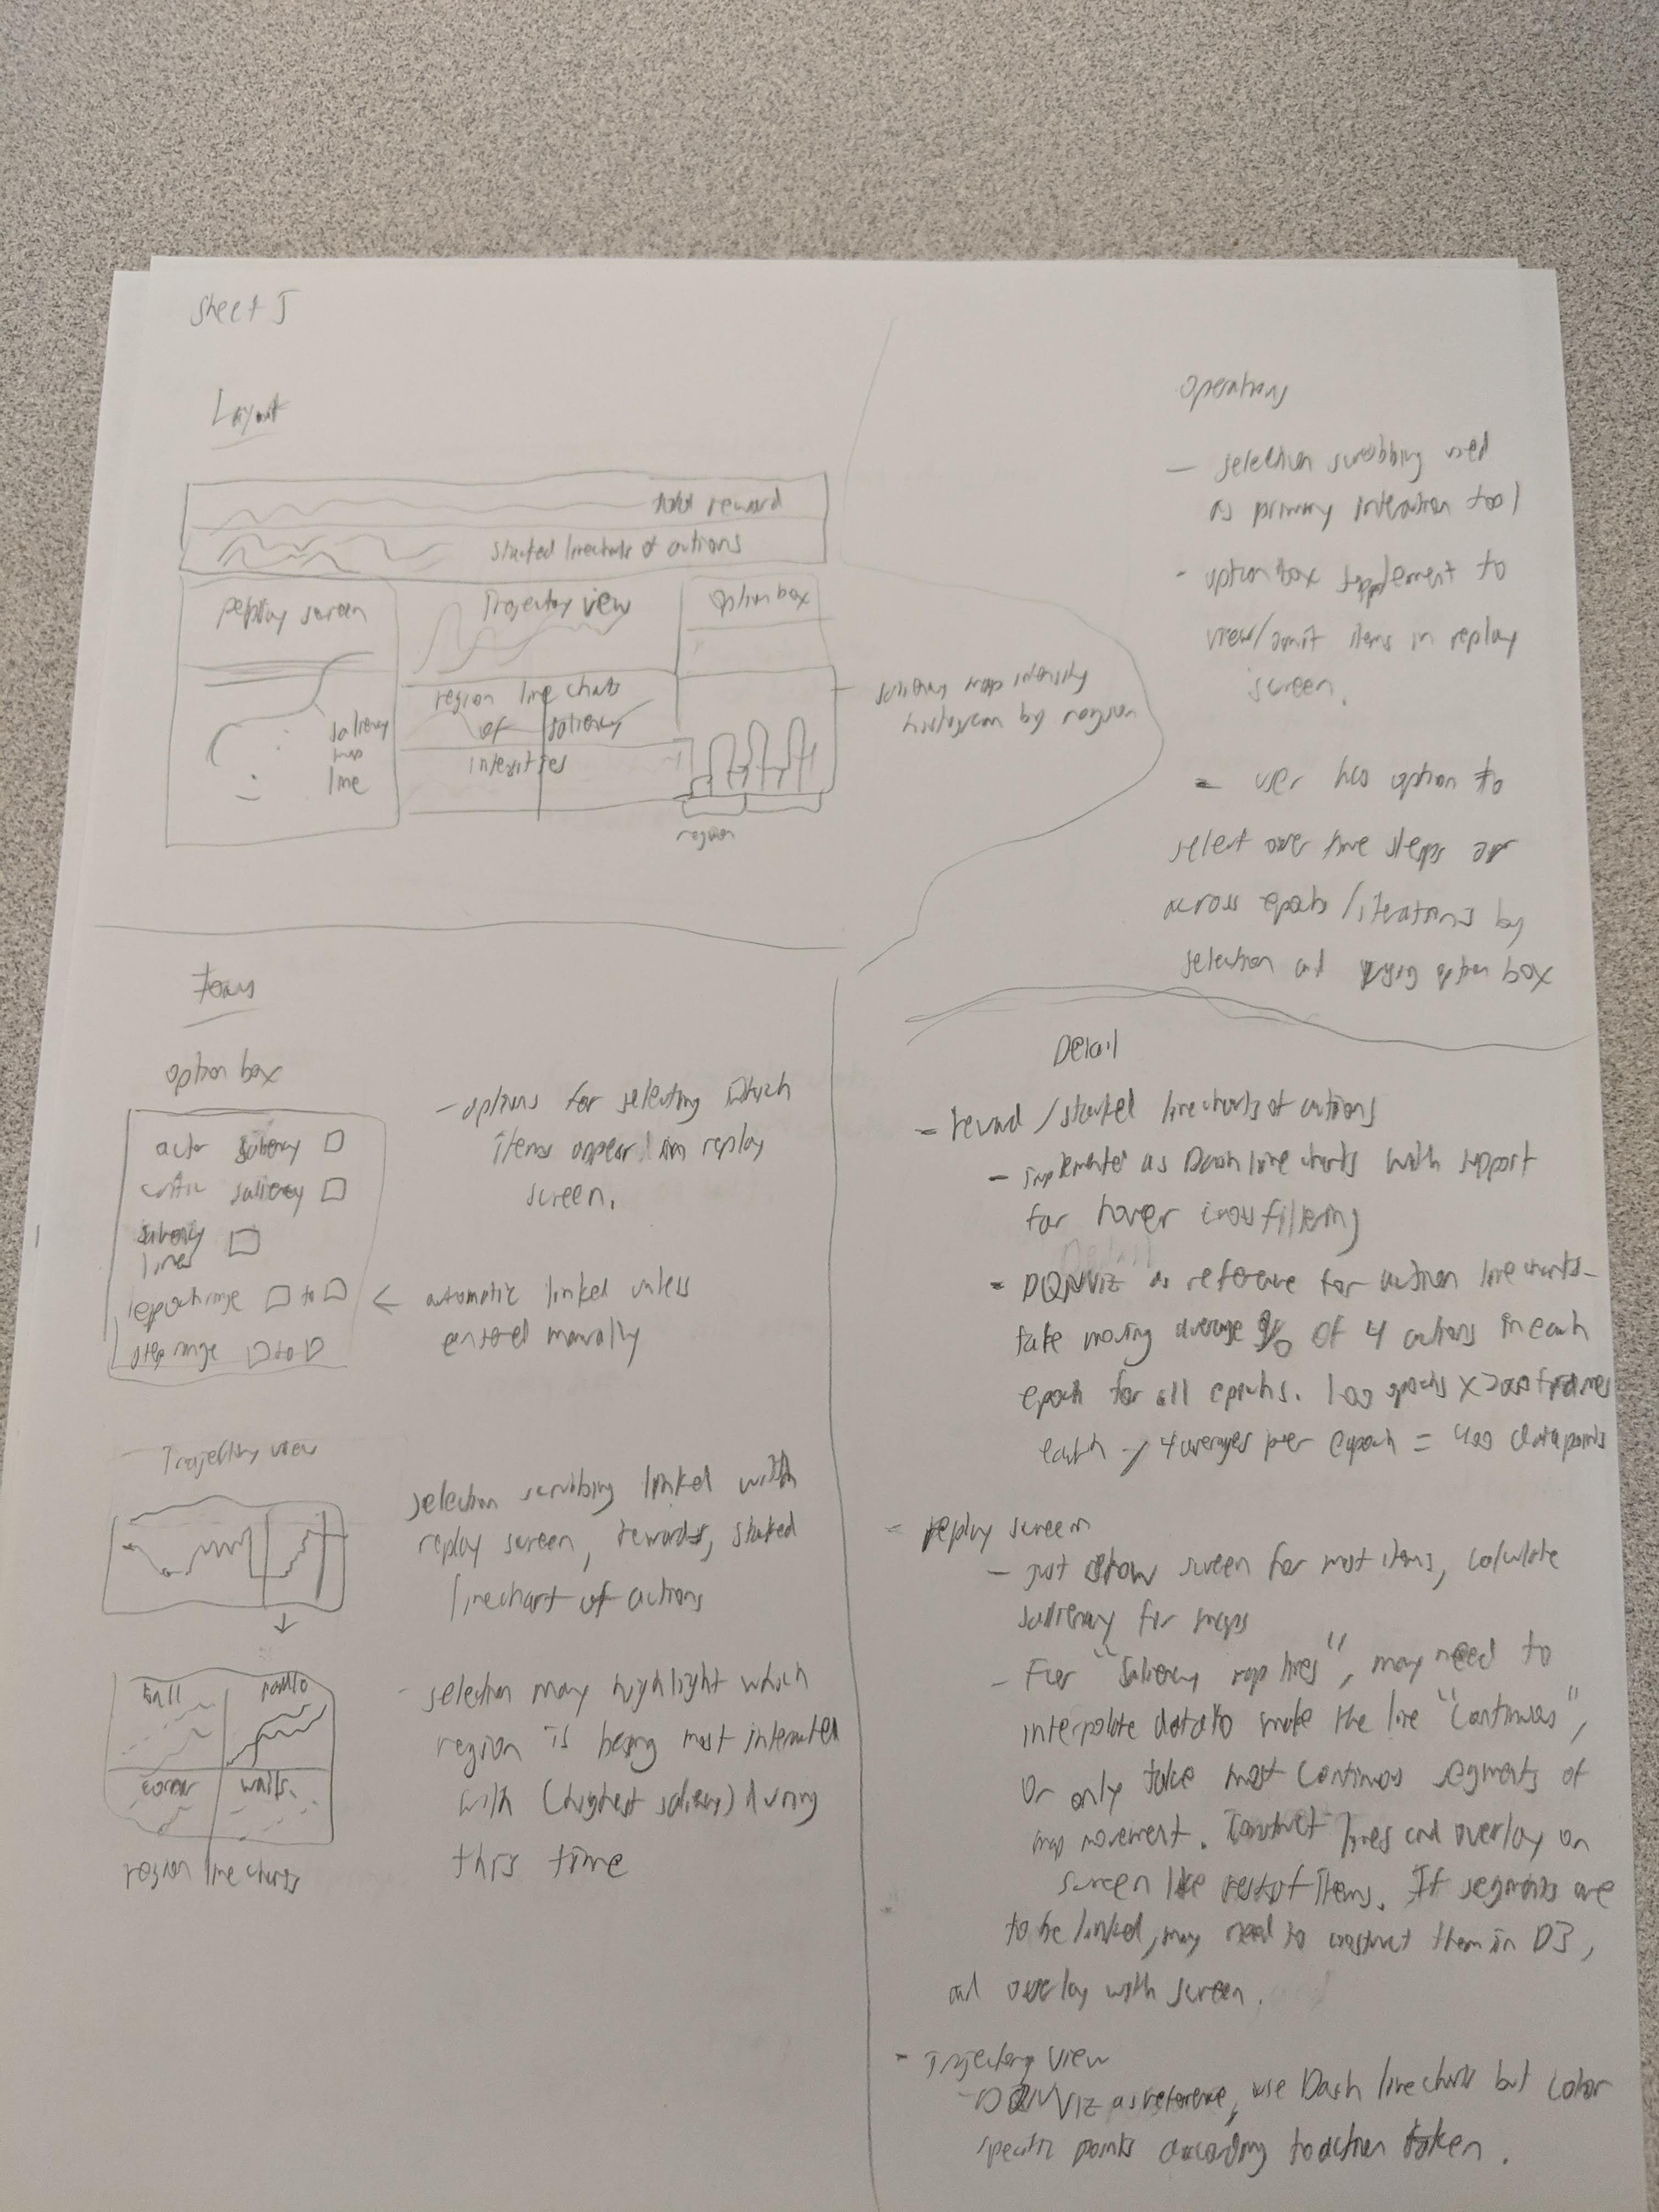 Sheet 5
Layout
total reward
stacked linecharts of actions
replay screen
Trajectory view
option box
saliency
map
line
region line charts
of saliency
intensities
region
saliency map intensity
histogram by region
Operations
- selection scrubbing used
as primary interaction tool
- option box supplement to
view/omit items in replay
screen.
- user has option to
select over time steps or
across epochs/iterations by
selection and using option box
Focus
option box
actor saliency
critic saliency
saliency
lines
epoch range to
step range to
- options for selecting which
items appear in replay
screen.
← automatic linked unless
entered manually
- Trajectory view
selection scrubbing linked with
replay screen, rewards, stacked
linechart of actions
ball
paddle
corner
walls
region line charts
- selection may highlight which
region is being most interacted
with (highest saliency) during
this time
Detail
- reward/stacked linecharts of actions
- implemented as Dash line charts with support
for hover crossfiltering
- DQNViz as reference for action line charts-
take moving average % of 4 actions in each
epoch for all epochs. 100 epochs x 2000 frames
each → 4 averages per epoch = 400 datapoints
- replay screen
- just show screen for most items, calculate
saliency for maps
- For "saliency map lines", may need to
interpolate data to make the line "continuous",
or only take most continuous segments of
map movement. Construct lines and overlay on
screen like rest of items. If segments are
to be linked, may need to construct them in D3,
and overlay with screen.
- Trajectory view
- DQNViz as reference, use Dash line charts but color
specific points according to action taken.